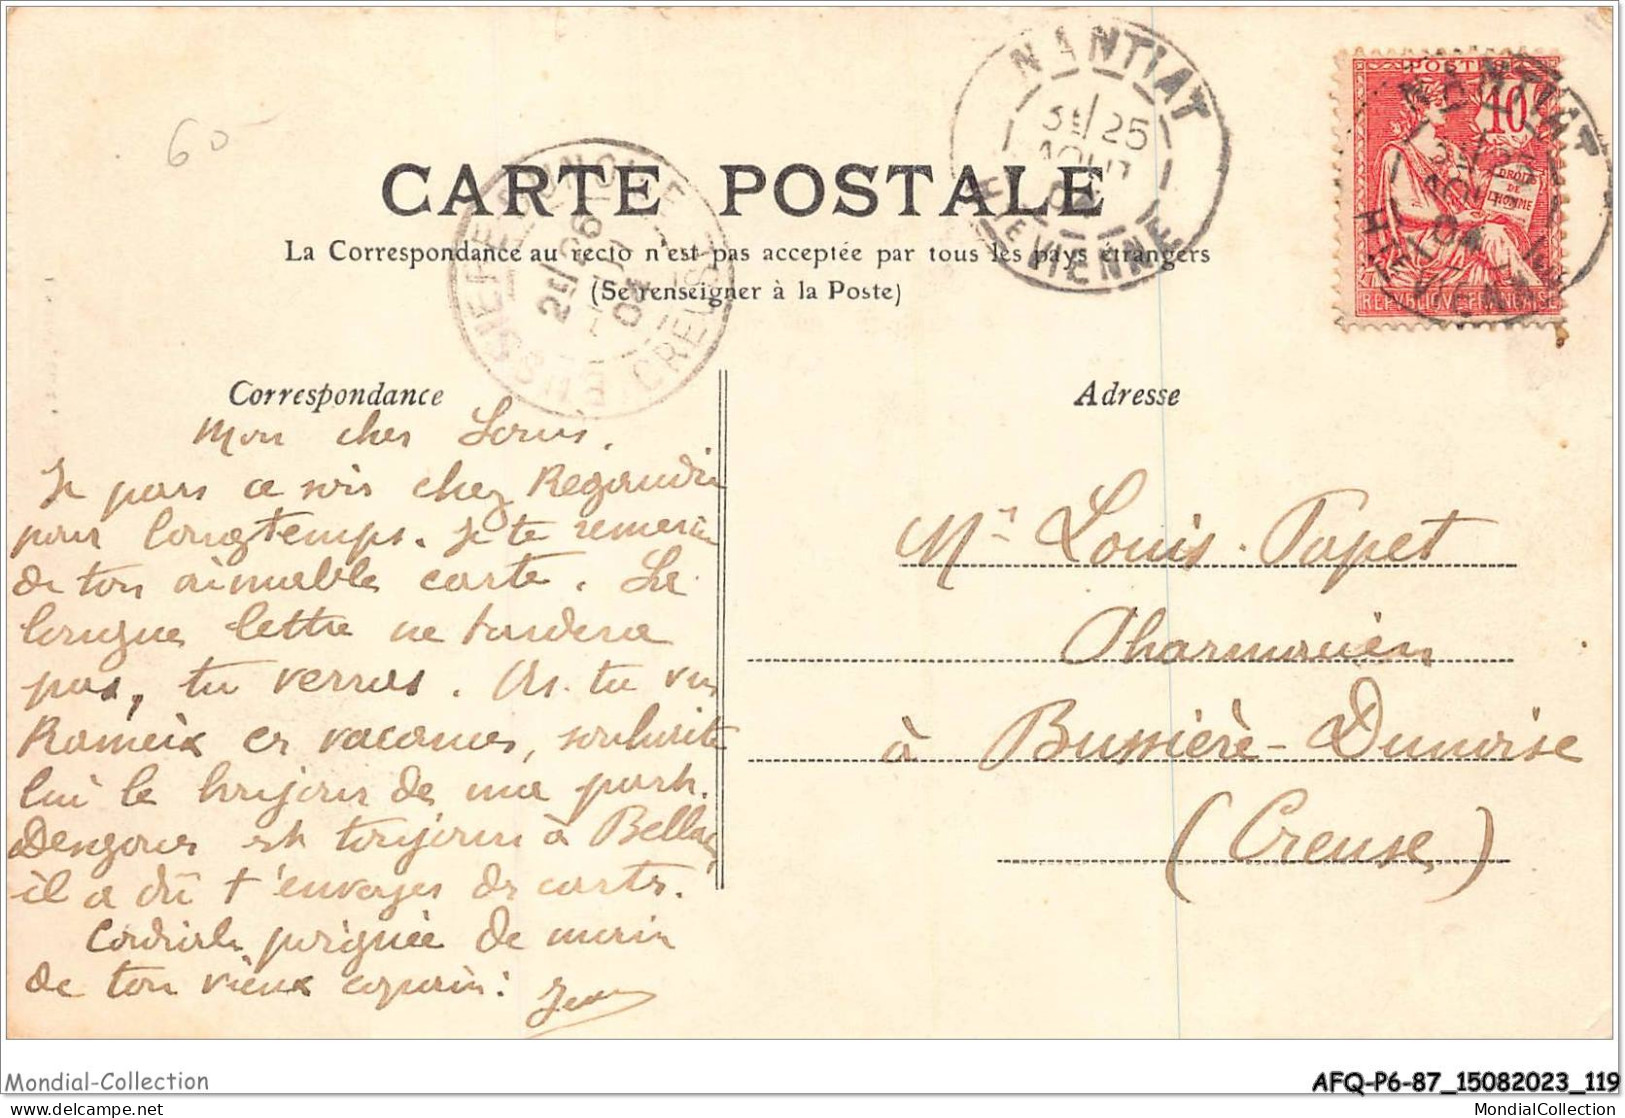 60
CARTE POSTALE
La Correspondance au recto n'est pas acceptée par tous les pays étrangers
(Se renseigner à la Poste)
NANTIAT
3E/25
AOUT
04
HTE VIENNE
POSTES
10
DROITS
DE
L'HOMME
REPUBLIQUE FRANÇAISE
NANTIAT
BUSSIERE DUNOISE
2E/26
04
CREUSE
Correspondance
Mon cher Louis.
Je pars ce soir chez Regaudie
pour longtemps. Je te remercie
de ton aimable carte. La
longue lettre ne tardera
pas, tu verras. As-tu vu
Rameix en vacances, souhaite
lui le bonjour de ma part.
est toujours à Bellac,
il a dû t'envoyer des cartes.
Cordiale poignée de main
de ton vieux copain :
Jean
Adresse
Mr Louis Papet
Pharmacien
à Bussière-Dunoise
(Creuse)
Mondial-Collection
AFQ-P6-87_15082023_119
delcampe.net
MondialCollection